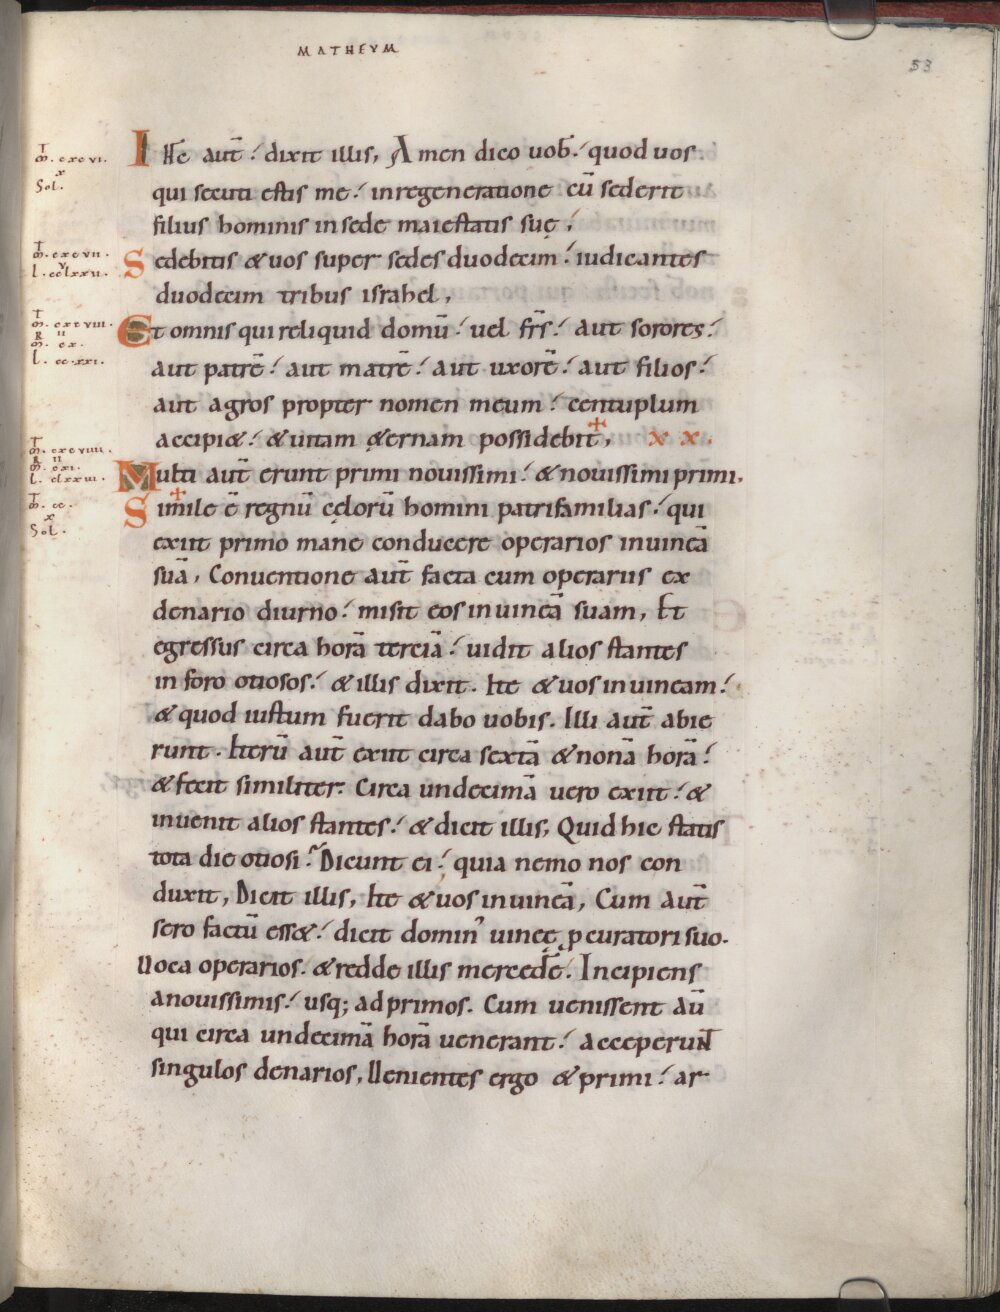 MATHEVM
53
T
m̄. cxcvi.
x
Sol.
T
m̄. cxcvii.
v
l. cclxxii.
T
m̄. cxcviii.
R ii
m̄. cx.
l. ccxxi.
T
m̄. cxcviiii.
R ii
m̄. cxi.
l. clxxiii.
T
m̄. cc.
x
Sol.
Ihc̄ aut̄ dixit illis, Amen dico uob̄. quod uos
qui secuti estis me. in regeneratione cū sederit
filius hominis in sede maiestatis suę,
Sedebitis & uos super sedes duodecim. iudicantes
duodecim tribus israhel,
Et omnis qui reliquid domū. uel fr̄s. aut sorores.
aut patrē. aut matrē. aut uxorē. aut filios.
aut agros propter nomen meum. centuplum
accipi&. & uitam &ernam possidebit, xx.
Multi aut̄ erunt primi nouissimi. & nouissimi primi.
Simile ē regnū cęlorū homini patrifamilias. qui
exiit primo mane conducere operarios in uineā
suā, Conuentione aut̄ facta cum operariis ex
denario diurno. misit eos in uineā suam, Et
egressus circa horā terciā. uidit alios stantes
in foro otiosos. & illis dixit. Ite & uos in uineam.
& quod iustum fuerit dabo uobis. Illi aut̄ abie
runt. Iterū aut̄ exiit circa sextā & nonā horā.
& fecit similiter. Circa undecimā uero exiit. &
inuenit alios stantes. & dicit illis, Quid hic statis
tota die otiosi? Dicunt ei. quia nemo nos con
duxit, Dicit illis, Ite & uos in uineā, Cum aut̄
sero factū ess&. dicit domin' uineę ꝓcuratori suo.
Uoca operarios. & redde illis mercedē. Incipiens
a nouissimis. usq; ad primos. Cum uenissent aū
qui circa undecimā horā uenerant. acceperunt
singulos denarios, Uenientes ergo & primi. ar